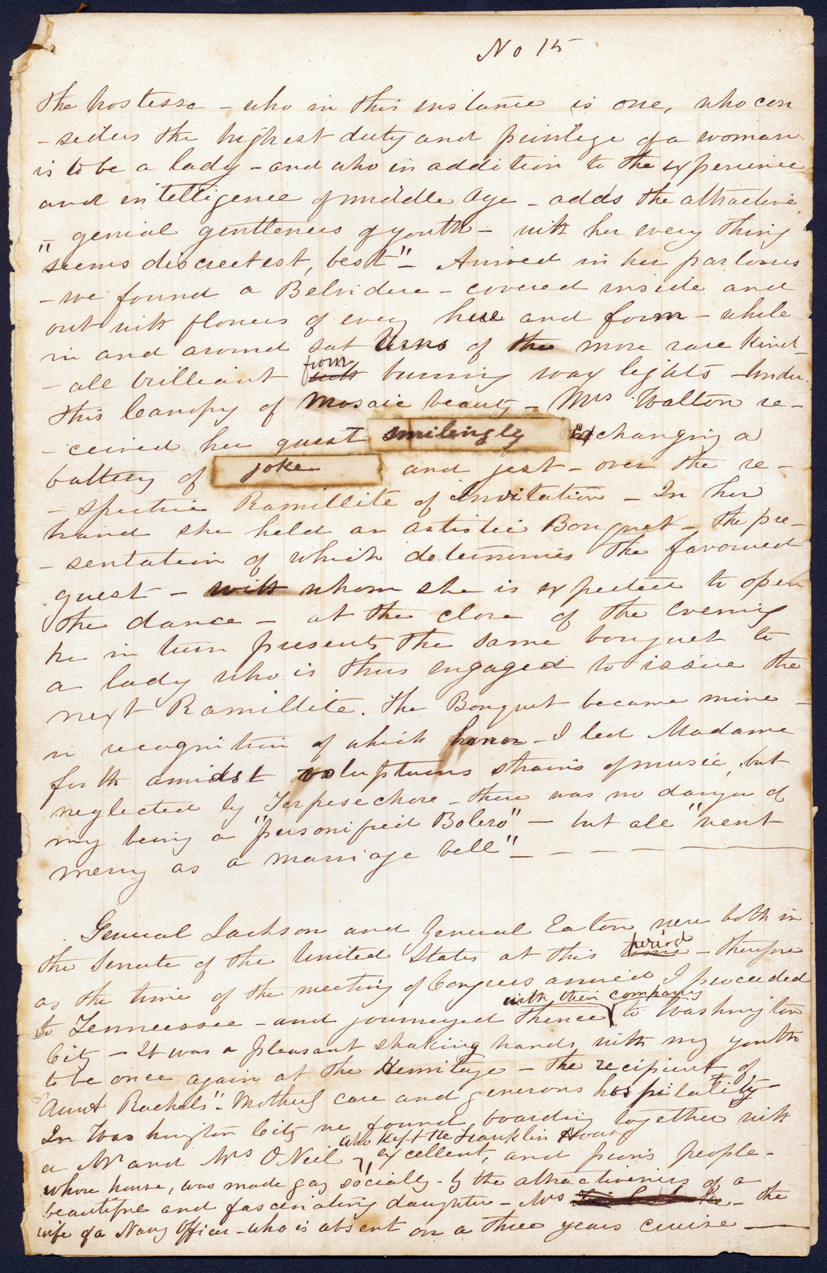 No 15
the hostess - who in this instance is one, who con
-siders the highest duty and privilege of a woman
is to be a lady - and who in addition to the experience
and intelligence of middle age - adds the attractive,
" genial gentleness of youth - with her every thing
"seems discreetest, best" - Arrived in her parlours
- we found a Belvidere - covered inside and
out with flowers of every hue and form - while
in and around sat Urns of the more rare kind -
- all brilliant from burning wax lights - Under
this Canopy of Mosaic beauty - Mrs Walton re-
-ceived her guest smilingly Exchanging a
battery of joke and jest - over the re-
-spective Ramillite of Invitation - In her
hand she held an artistic Bouquet - the pre-
-sentation of which determines the favoured
guest - with whom she is expected to open
the dance - at the close of the evening
he in turn presents the same bouquet to
a lady who is thus engaged to issue the
next Ramillite. The Bouquet became mine -
in recognition of which honor - I led Madame
forth amidst voluptuous strains of music, but
neglected by Terpesechore - there was no danger of
my being a "personified Bolero" - but all "went
merry as a marriage bell" -
General Jackson and General Eaton were both in
the Senate of the United States at this period - therefore
as the time of the meeting of Congress arrived I proceeded
to Tennessee - and journeyed thence with their company to Washington
City - It was a pleasant shaking hands, with my youth
to be once again at the Hermitage - the recipient of
"Aunt Rachels" - Motherly care and generous hospitality -
In Washington City we found boarding together with
a Mr and Mrs O'Neil who kept the Franklin House excellent, and pious people -
whose house, was made gay socially - by the attractiveness of a
beautiful and fascinating daughter - Mrs - the
wife of a Navy Officer - who is absent on a three years cruise -